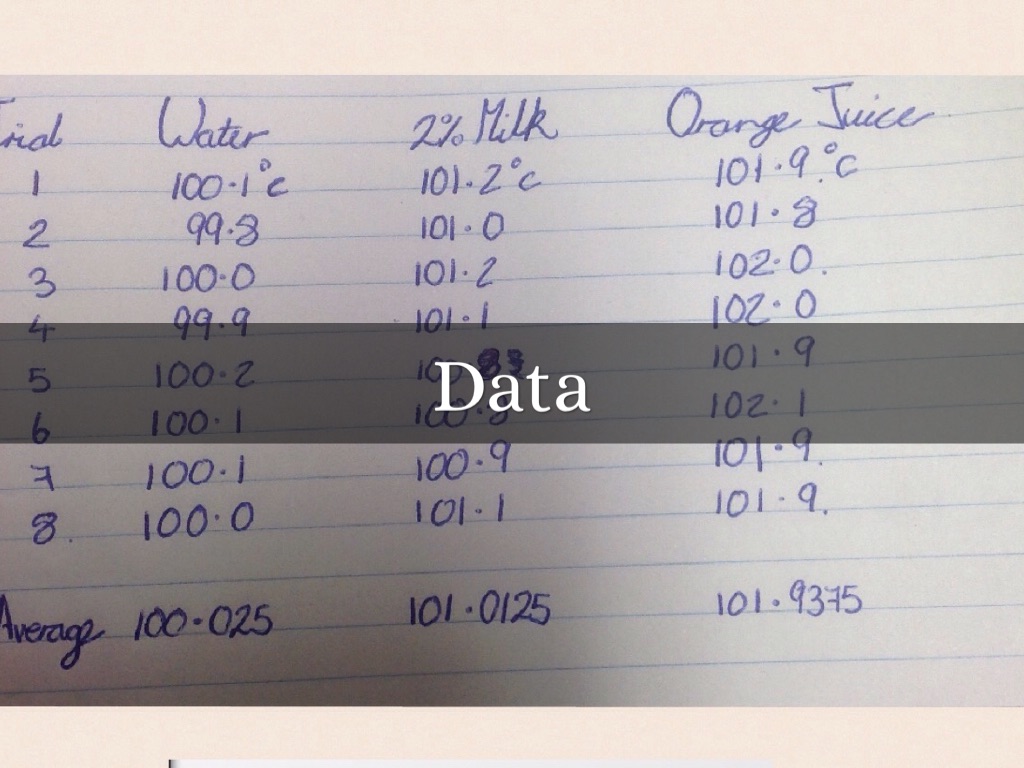 Water 2% Milk Orange Juice
1 100.1°C 101.2°C 101.9.°C
2 99.8 101.0 101.8
3 100.0 101.2 102.0.
4 99.9 101.1 102.0
5 100.2 101.9
6 100.1 102.1
7 100.1 100.9 101.9.
8. 100.0 101.1 101.9.
Average 100.025 101.0125 101.9375
Data